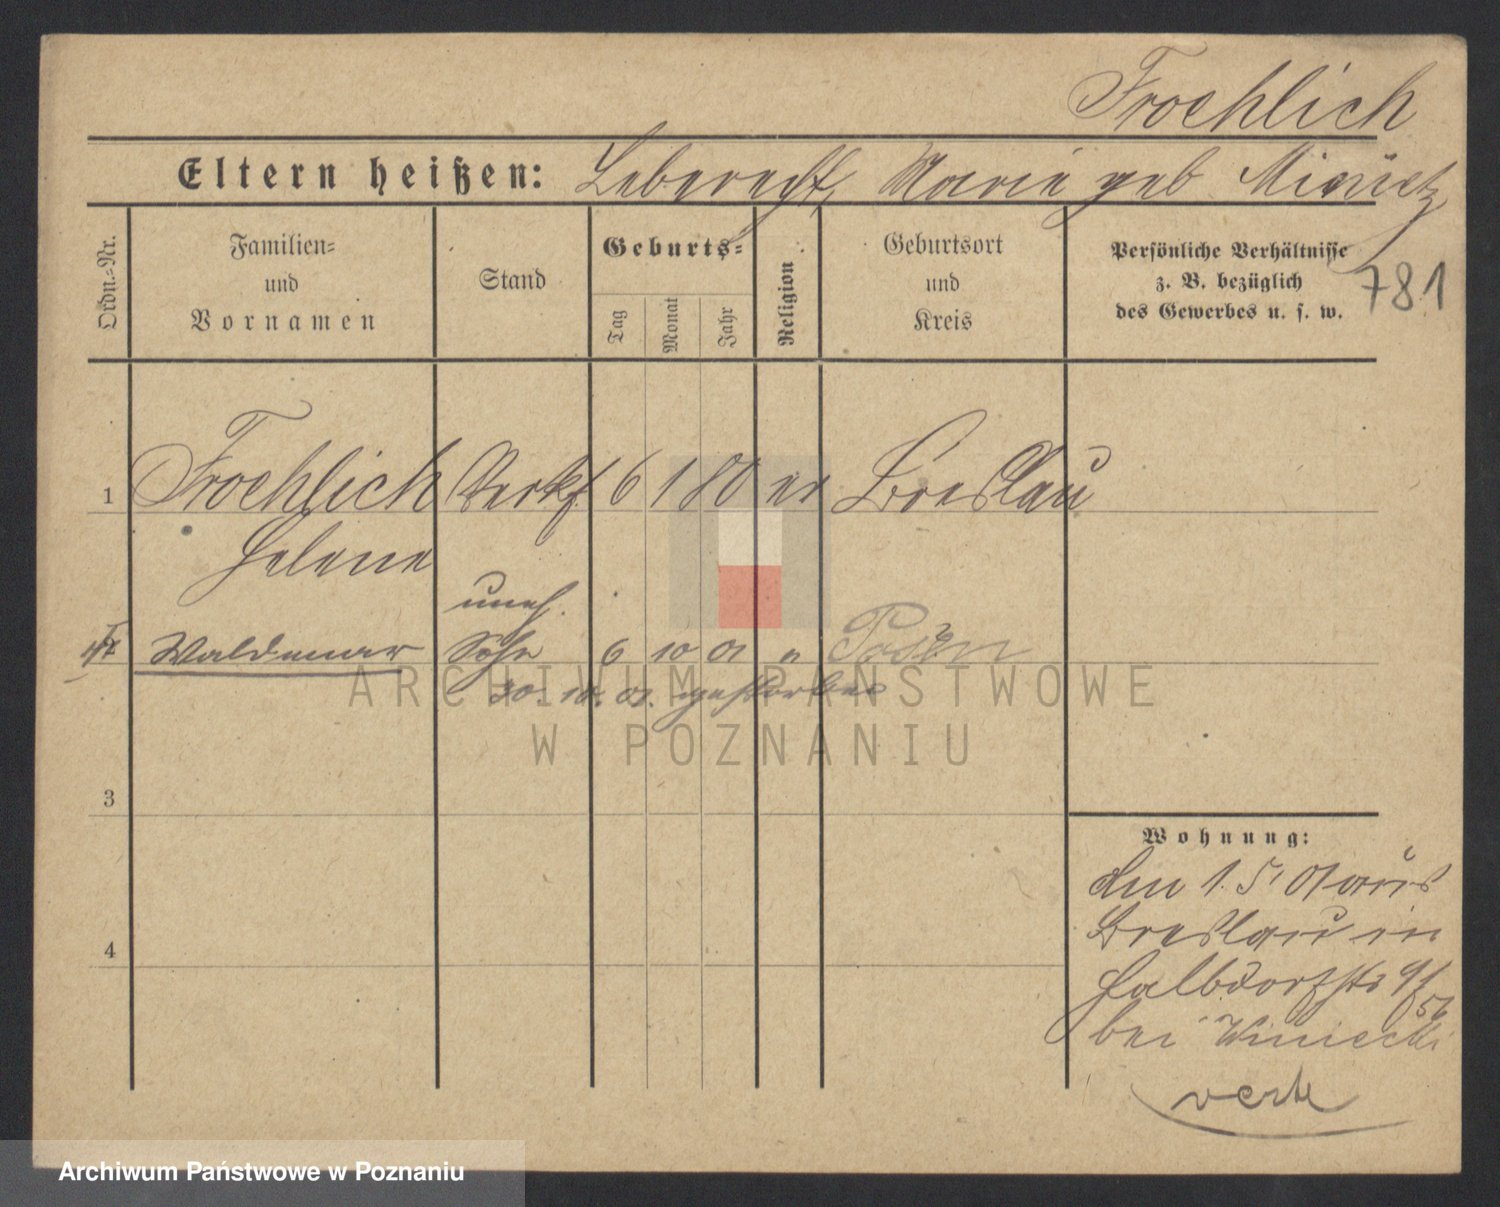 Froehlich
Eltern heißen: Leberecht, Marie geb
Ordn.-Nr.
Familien-
und
Vornamen
Stand
Geburts-
Tag
Monat
Jahr
Religion
Geburtsort
und
Kreis
Persönliche Verhältnisse
z. B. bezüglich
des Gewerbes u. s. w.
781
1 Froehlich Verkf. 6 1 80 ev Breslau
Helene
uneh.
Waldemar Sohn 6 10 01 " Posen
30. 10. 01. gestorben
3
4
Wohnung:
den 1. 5. 01 aus
Breslau in
Halbdorfstr 9/
bei Winiecki
ARCHIWUM PAŃSTWOWE
W POZNANIU
Archiwum Państwowe w Poznaniu